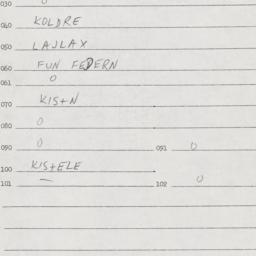 030 0
040 KOLDRE
050 LAJLAX
060 FUN FEDERN
061 0
070 KIS+N
080 0
090 0 091 0
100 KIS+ELE
101 — 102 0